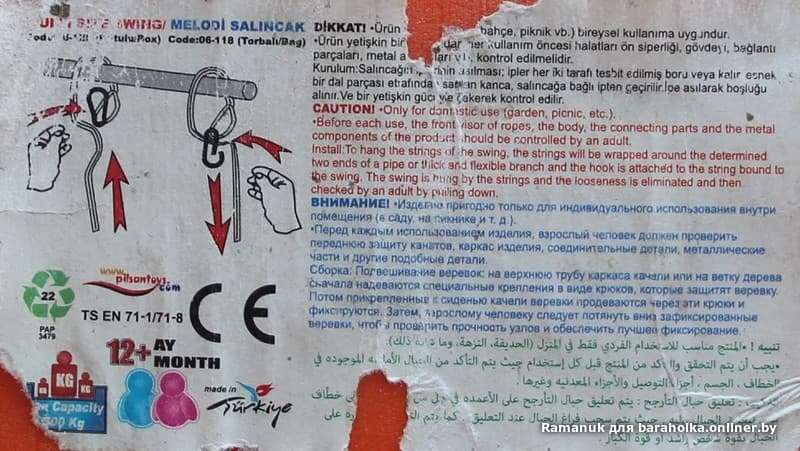 SWING/ MELODİ SALINCAK
Code:06-118 (Torbalı/Bag)
DİKKAT! •Ürün bahçe, piknik vb.) bireysel kullanıma uygundur.
•Ürün yetişkin her kullanım öncesi halatları ön siperliği, gövdeyi, bağlantı
parçaları, metal kontrol edilmelidir.
Kurulum:Salıncağın asılması; ipler her iki tarafı tesbit edilmiş boru veya kalın esnek
bir dal parçası etrafında kanca, salıncağa bağlı ipten geçirilir.İpe asılarak boşluğu
alınır.Ve bir yetişkin gücü çekerek kontrol edilir.
CAUTION! •Only for domestic use (garden, picnic, etc.).
•Before each use, the front visor of ropes, the body, the connecting parts and the metal
components of the product should be controlled by an adult.
Install:To hang the strings of the swing, the strings will be wrapped around the determined
two ends of a pipe or thick and flexible branch and the hook is attached to the string bound to
the swing. The swing is hung by the strings and the looseness is eliminated and then
checked by an adult by pulling down.
ВНИМАНИЕ! •Изделие пригодно только для индивидуального использования внутри
помещения (в саду, на пикнике и т. д.).
•Перед каждым использованием изделия, взрослый человек должен проверить
переднюю защиту канатов, каркас изделия, соединительные детали, металлические
части и другие подобные детали.
Сборка: Подвешивание веревок: на верхнюю трубу каркаса качели или на ветку дерева
сначала надеваются специальные крепления в виде крюков, которые защитят веревку.
Потом прикрепленные к сиденью качели веревки продеваются через эти крюки и
фиксируются. Затем, взрослому человеку следует потянуть вниз зафиксированные
веревки, чтобы проверить прочность узлов и обеспечить лучшее фиксирование.
تنبيه ! •المنتج مناسب للاستخدام الفردي فقط في المنزل (الحديقة، النزهة، وما ذلك).
•يجب أن يتم التحقق والتأكد من المنتج قبل كل إستخدام حيث يتم التأكد من الحبال الأمامية الموجودة في
الخطاف ، الجسم ، أجزاء التوصيل والأجزاء المعدنية وغيرها .
تعليق حبال التأرجح : يتم تعليق حبال التأرجح على الأعمدة في خطاف
حيث يتم سحب فراغ الحبال عند التعليق . كما يتم على
الحبال بقوة شخص راشد أو قوة الكبار .
www.pilsantoys.com
22
PAP
3479
TS EN 71-1/71-8
CE
12+ AY
MONTH
KG
KG
KG
Capacity
Kg
made in
Türkiye
Ramanuk для baraholka.onliner.by